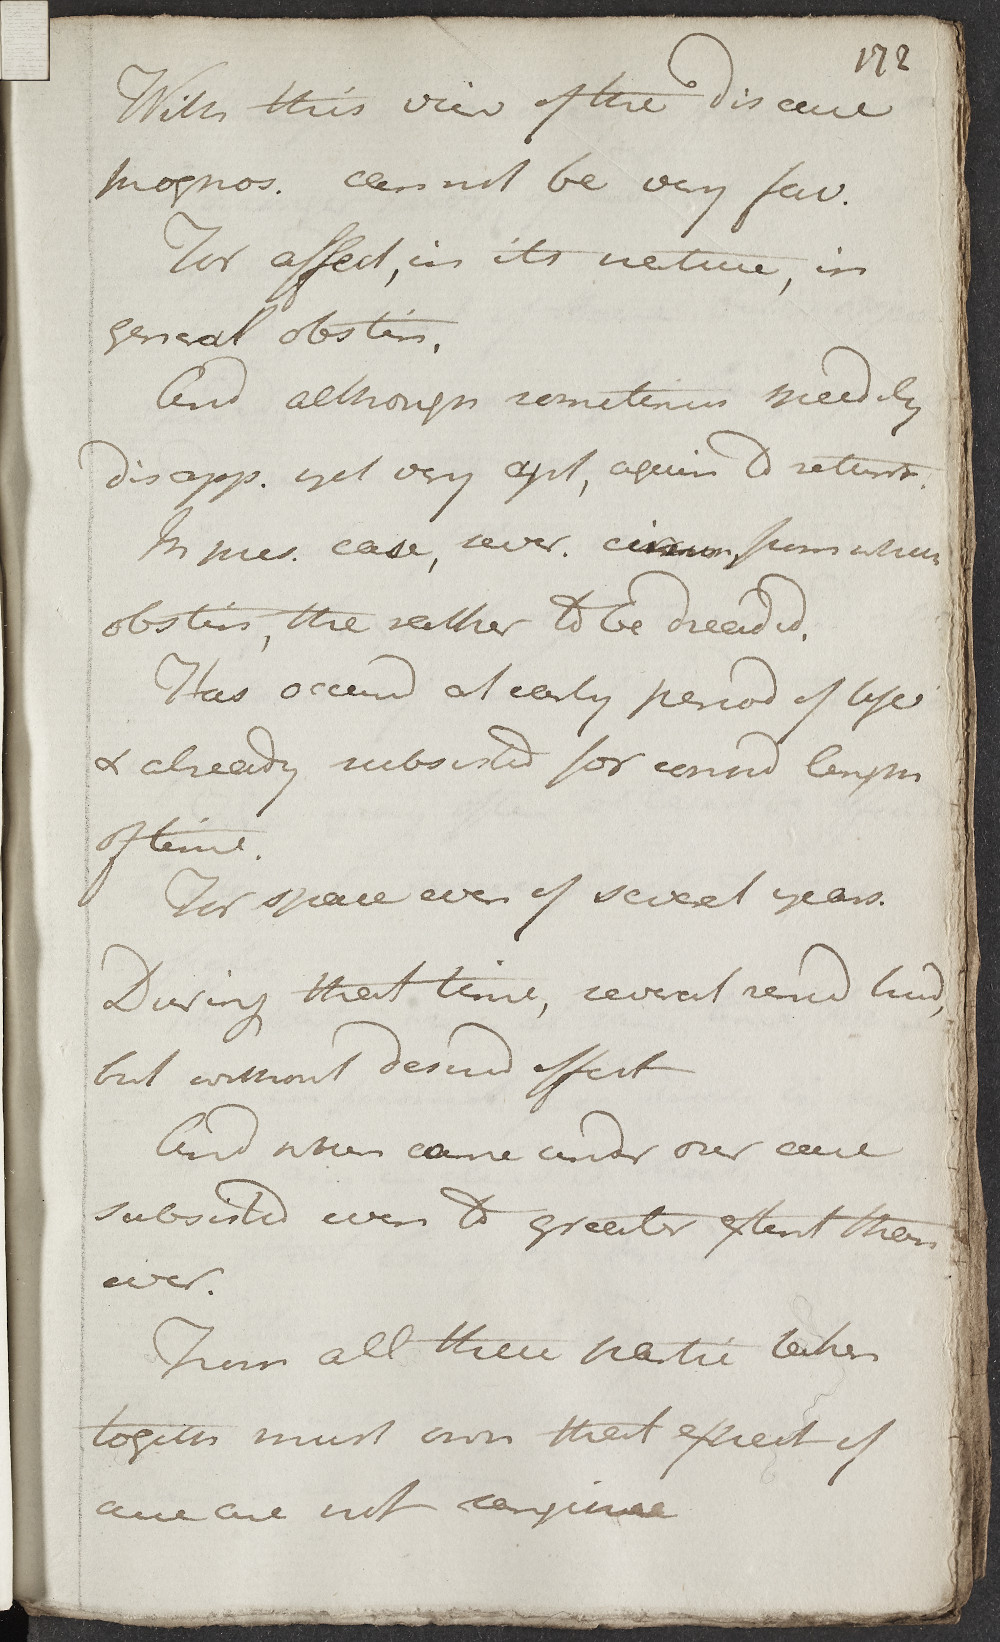 172
With this view of the disease
prognos. cannot be very fav.
For affect, in its nature, in
general obstin.
And although sometimes speedily
disapp. yet very apt, again to return.
In pres. case, sever. circum, from when
obstin, the rather to be dreaded.
Has occurd at early period of life
& already subsisted for consid length
of time.
For space even of several years.
During that time, several remd had,
but without desired effect
And when came under our care
subsisted even to greater extent than
ever.
From all these partic taken
togeth must own that expect of
cure are not sanguine